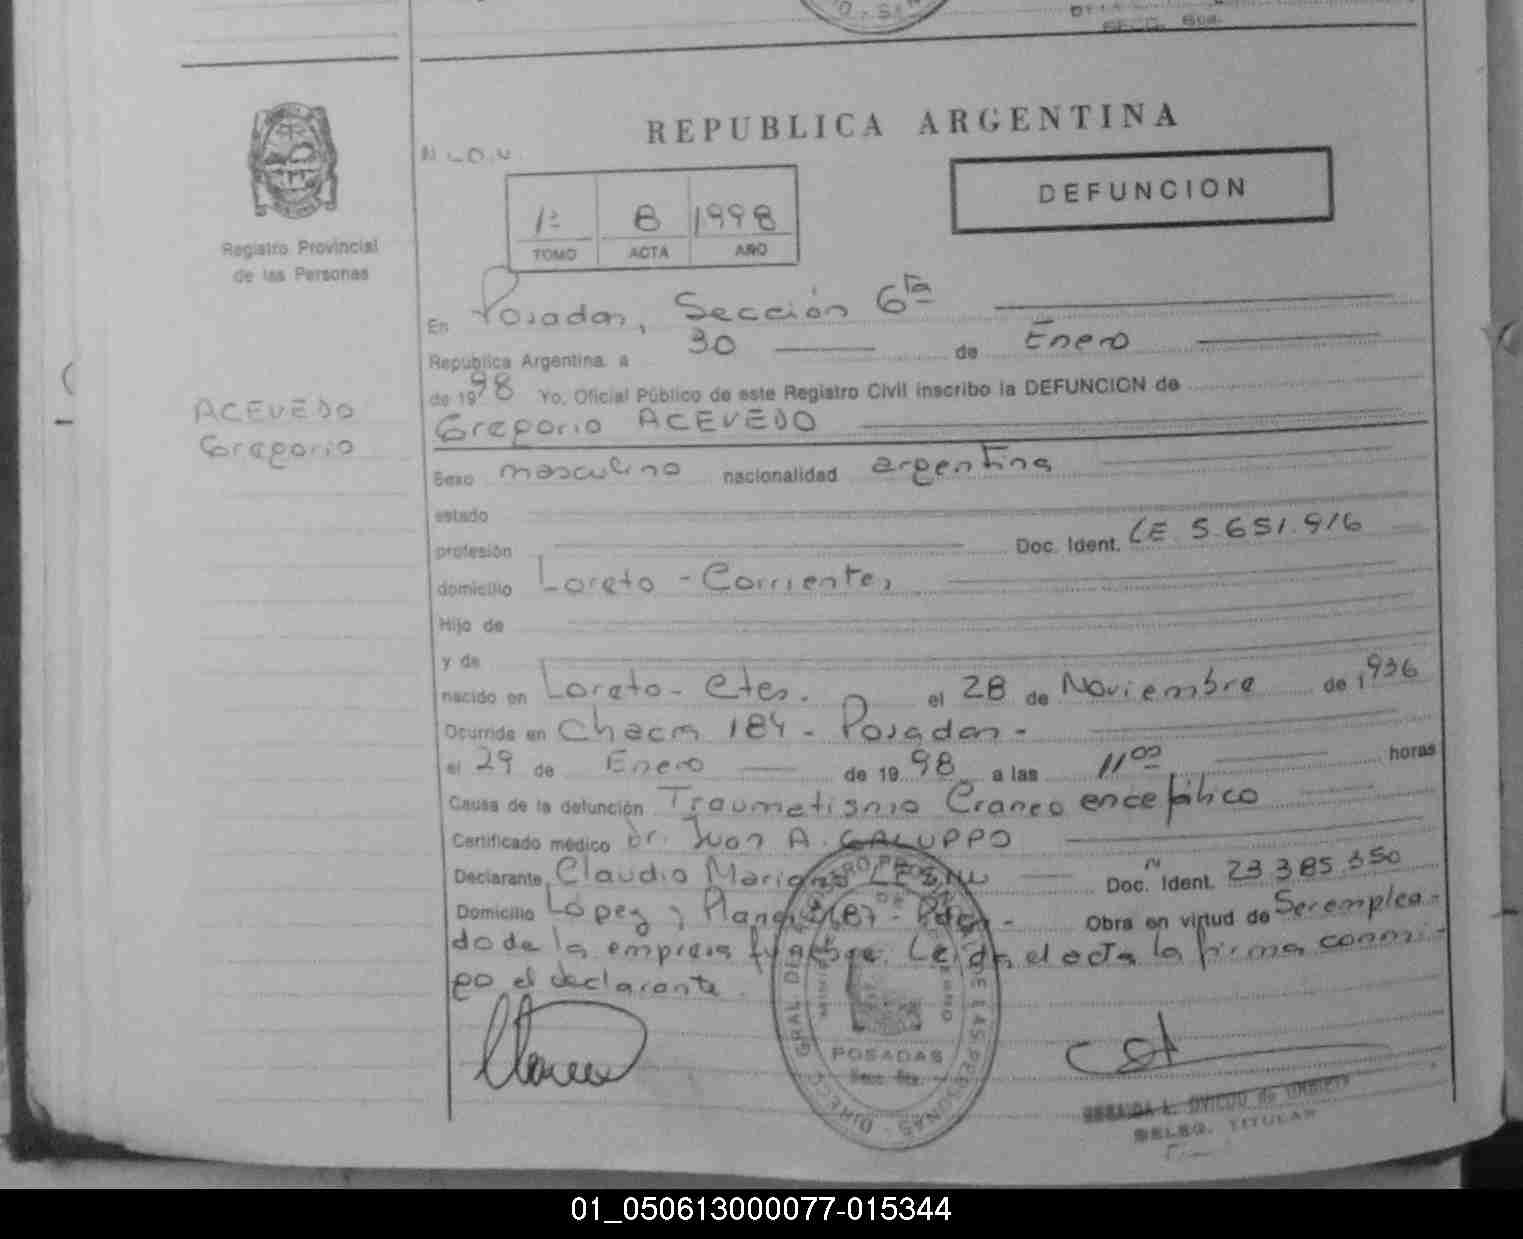 REPUBLICA ARGENTINA
DEFUNCION
1º 8 1998
TOMO ACTA AÑO
Registro Provincial
de las Personas
En Posadas, Sección 6ta
Republica Argentina a 30 de Enero
de 1998 Yo. Oficial Público de este Registro Civil inscribo la DEFUNCION de
ACEVEDO
Gregorio
Gregorio ACEVEDO
Sexo masculino nacionalidad argentina
estado
profesión Doc. Ident. LE 5.651.916
domicilio Loreto - Corrientes
Hijo de
y de
nacido en Loreto - Ctes. el 28 de Noviembre de 1936
Ocurrida en Chacra 184 - Posadas -
el 29 de Enero de 1998 a las 11 00 horas
Causa de la defunción Traumatismo Craneo encefálico
Certificado médico Dr. Juan A. GALUPPO
Declarante Claudio Mariano Doc. Ident. 23.385.350
Domicilio López y Planes - Obra en virtud de Ser emplea-
do de la empresa fúnebre. Leida el acta la firma conmi-
go el declarante.
POSADAS
DIRECC. GRAL. DE LAS PERSONAS
DELEG. TITULAR
01_050613000077-015344